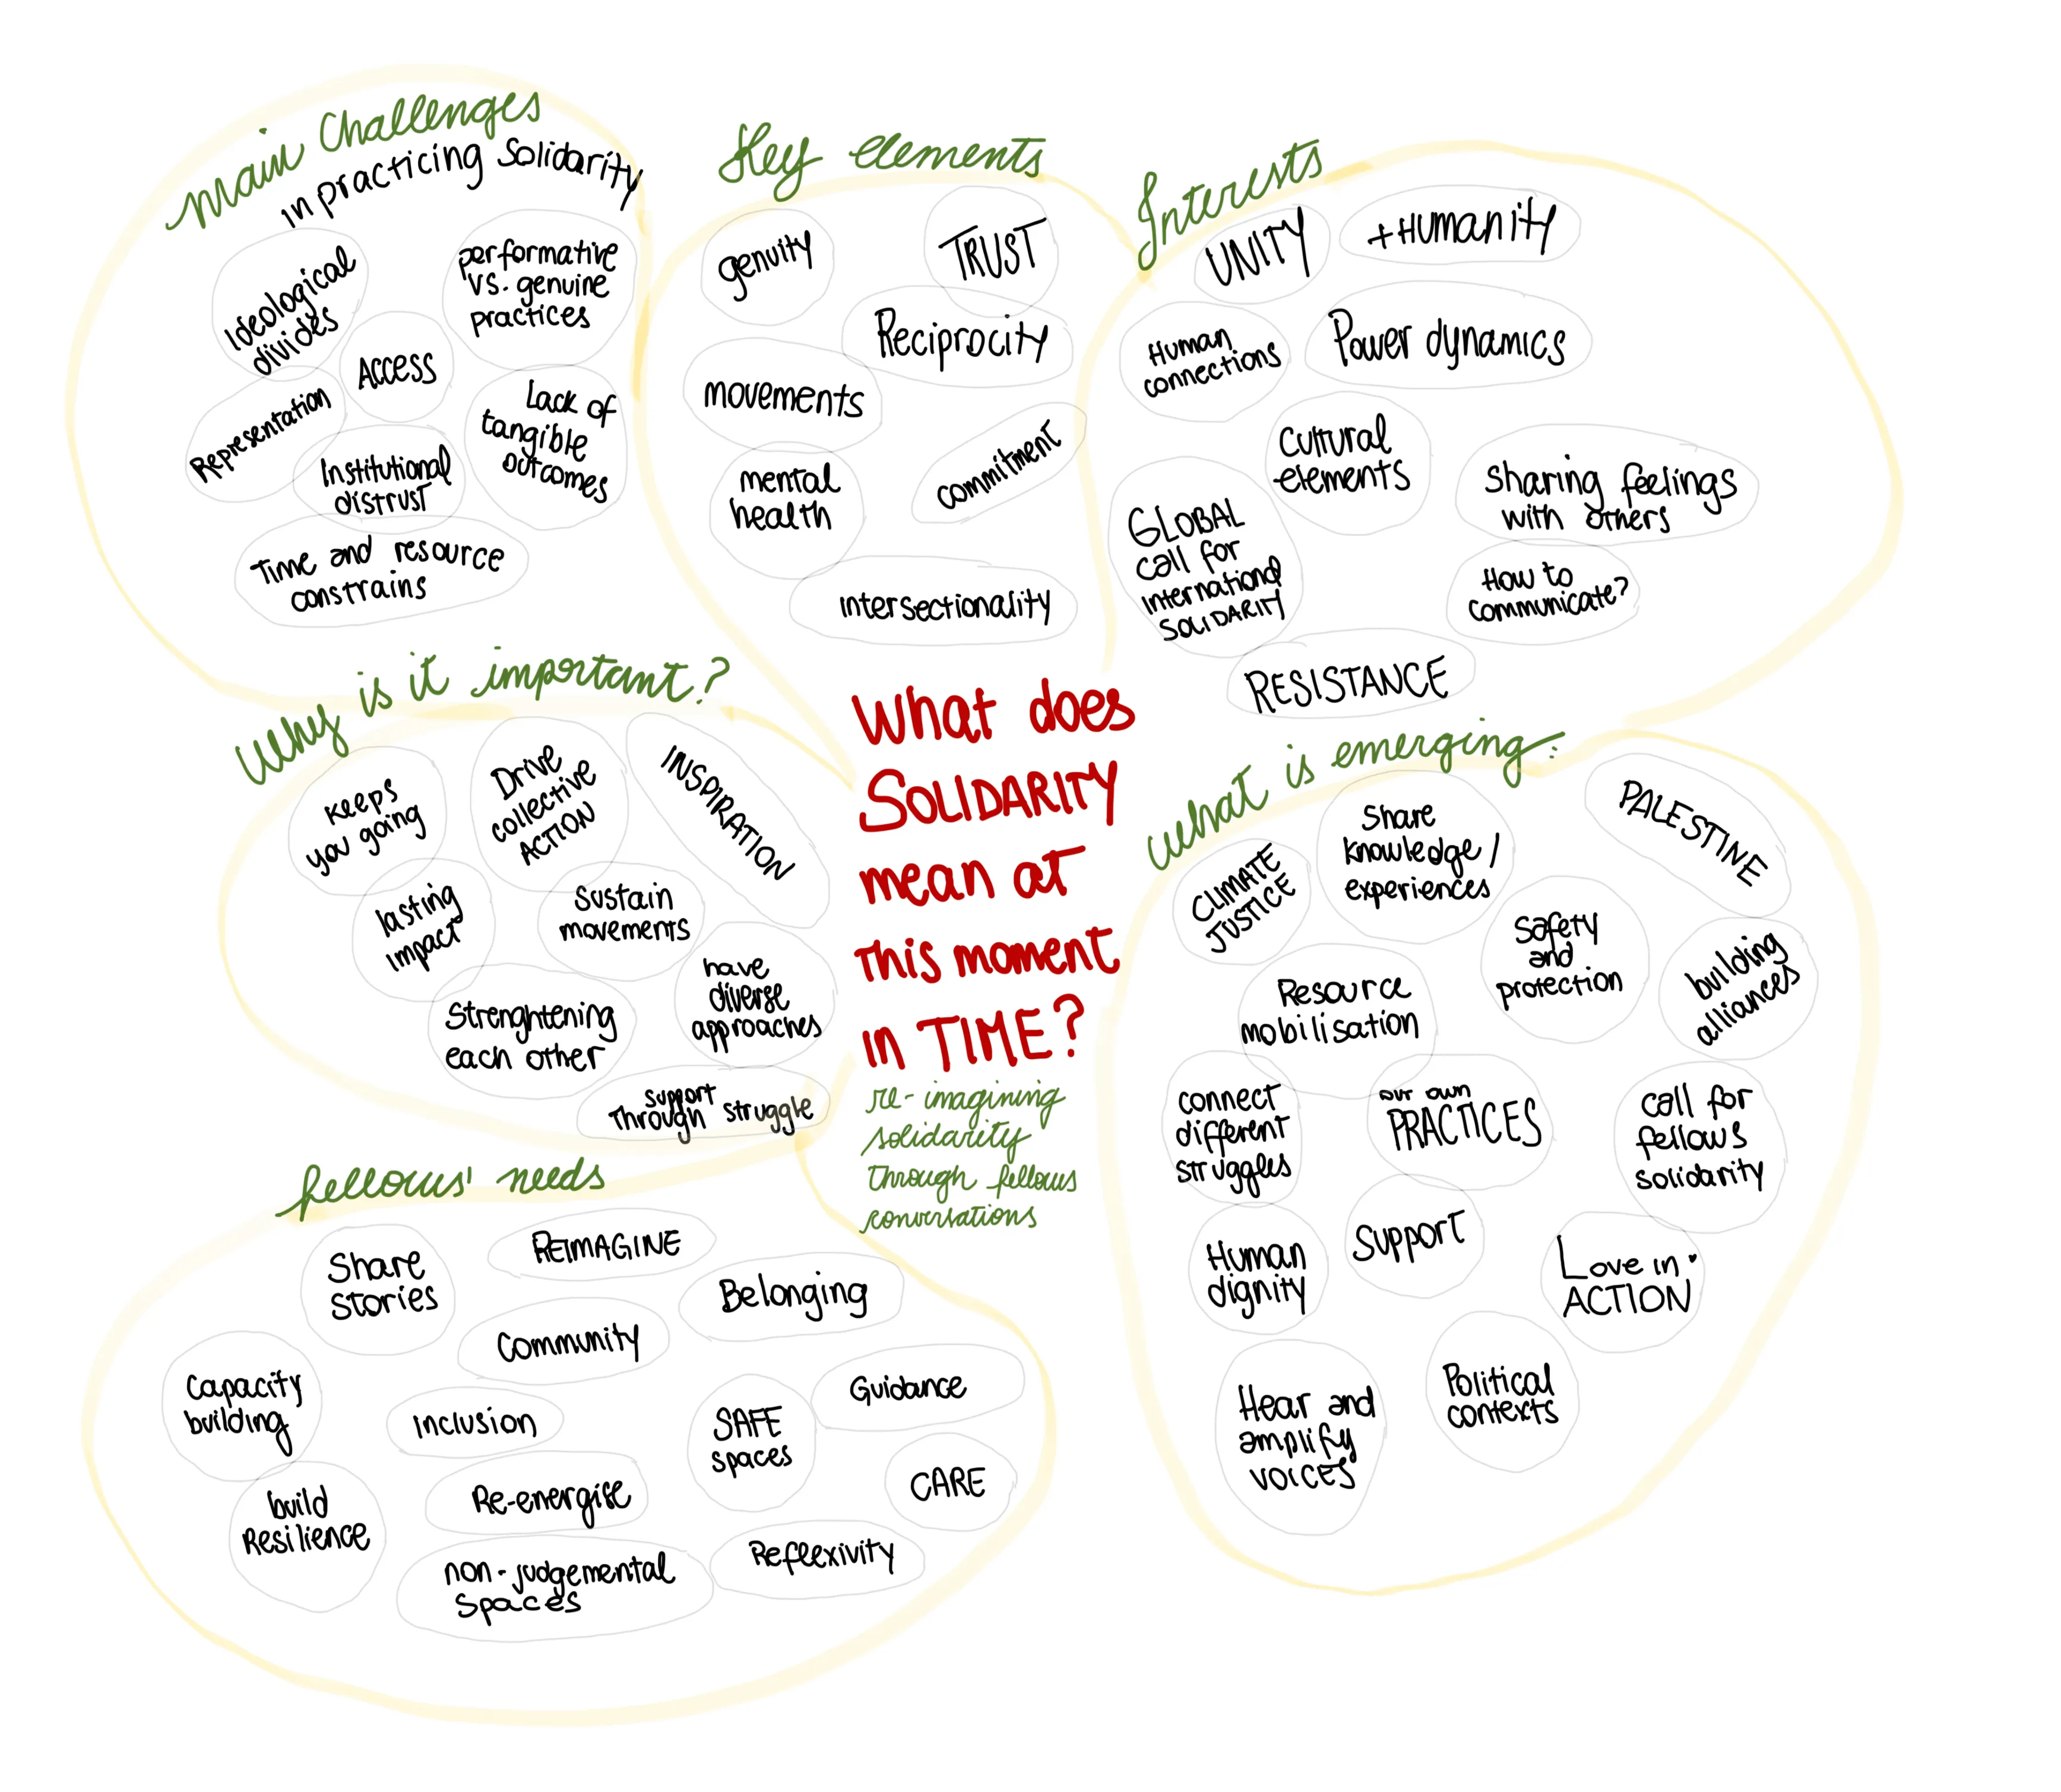 main Challenges
in practicing Solidarity
Ideological
divides
performative
vs. genuine
practices
ACCESS
Representation
Lack of
tangible
outcomes
Institutional
distrust
Time and resource
constrains
Key elements
genuity
TRUST
Reciprocity
movements
commitment
mental
health
Intersectionality
Interests
UNITY
+Humanity
Human
connections
Power dynamics
Cultural
elements
Sharing feelings
with others
GLOBAL
call for
International
SOLIDARITY
How to
communicate?
RESISTANCE
Why is it important?
Keeps
you going
Drive
collective
ACTION
INSPIRATION
lasting
impact
Sustain
movements
have
diverse
approaches
Strenghtening
each other
support
Through struggle
What does
SOLIDARITY
mean at
this moment
in TIME?
re-imagining
solidarity
through fellows
conversations
What is emerging:
CLIMATE
JUSTICE
Share
knowledge/
experiences
PALESTINE
Safety
and
protection
building
alliances
Resource
mobilisation
connect
different
struggles
our own
PRACTICES
call for
fellows
solidarity
Human
dignity
Support
Love in
ACTION
Hear and
amplify
VOICES
Political
contexts
fellows' needs
Share
stories
REIMAGINE
Belonging
Community
Capacity
building
Inclusion
SAFE
spaces
Guidance
CARE
build
Resilience
Re-energise
non-judgemental
Spaces
Reflexivity